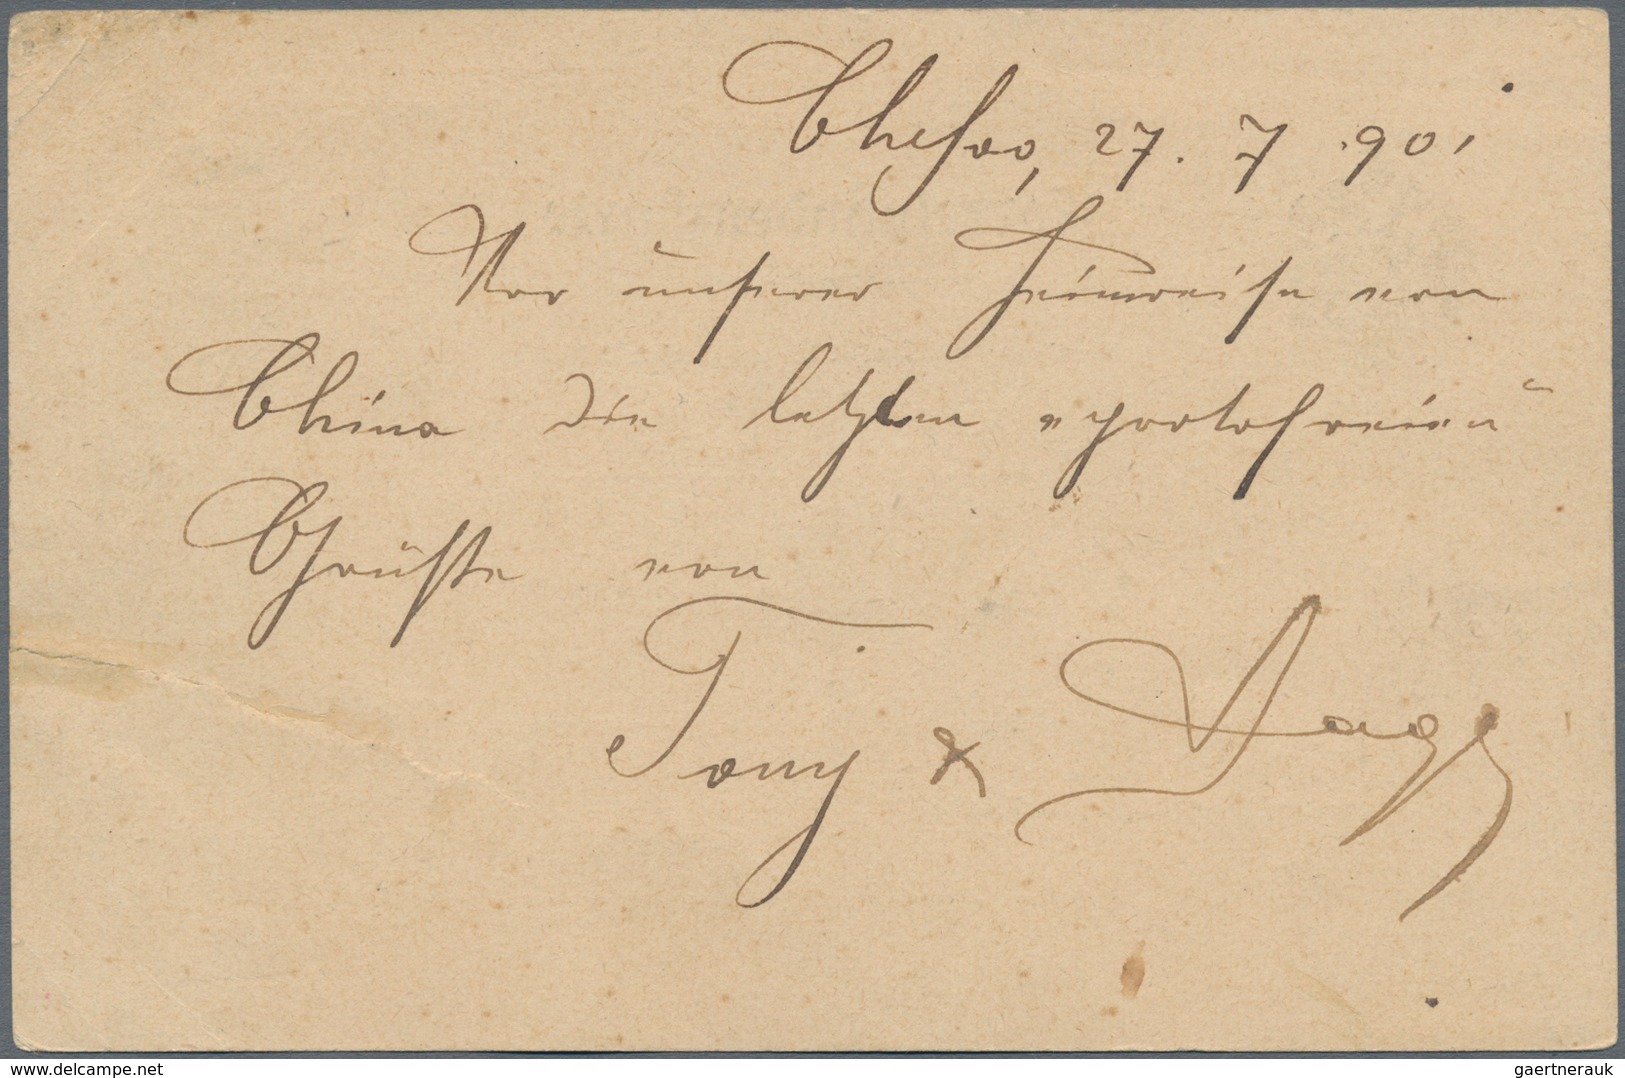 Chefoo, 27. 7. 901
Vor unserer Heimreise von
China die letzten "portofreien"
Grüße von
Tony &
www.delcampe.net
gaertnerauk